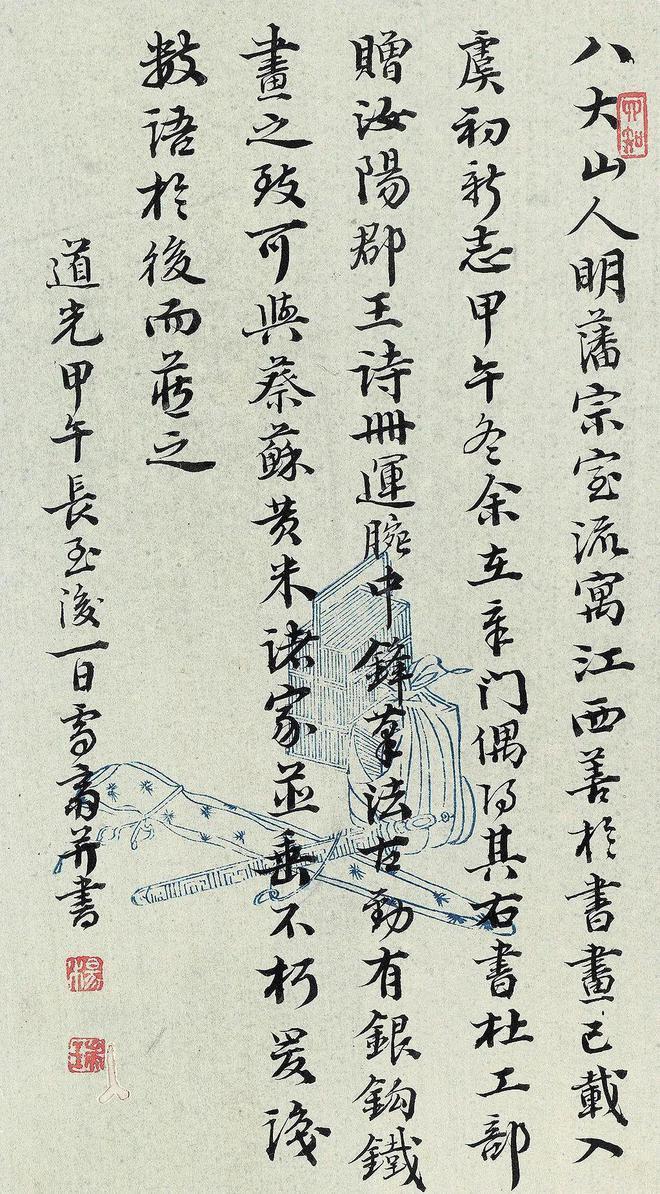 八大山人明藩宗室流寓江西善於書畫已載入
虞初新志甲午冬余在章門偶得其右書杜工部
贈汝陽郡王詩冊運腕中鋒筆法古勁有銀鈎鐵
畫之致可與蔡蘇黄米諸家並垂不朽爰識
數語於後而藏之
道光甲午長至後一日雪齋并書
四知
楊